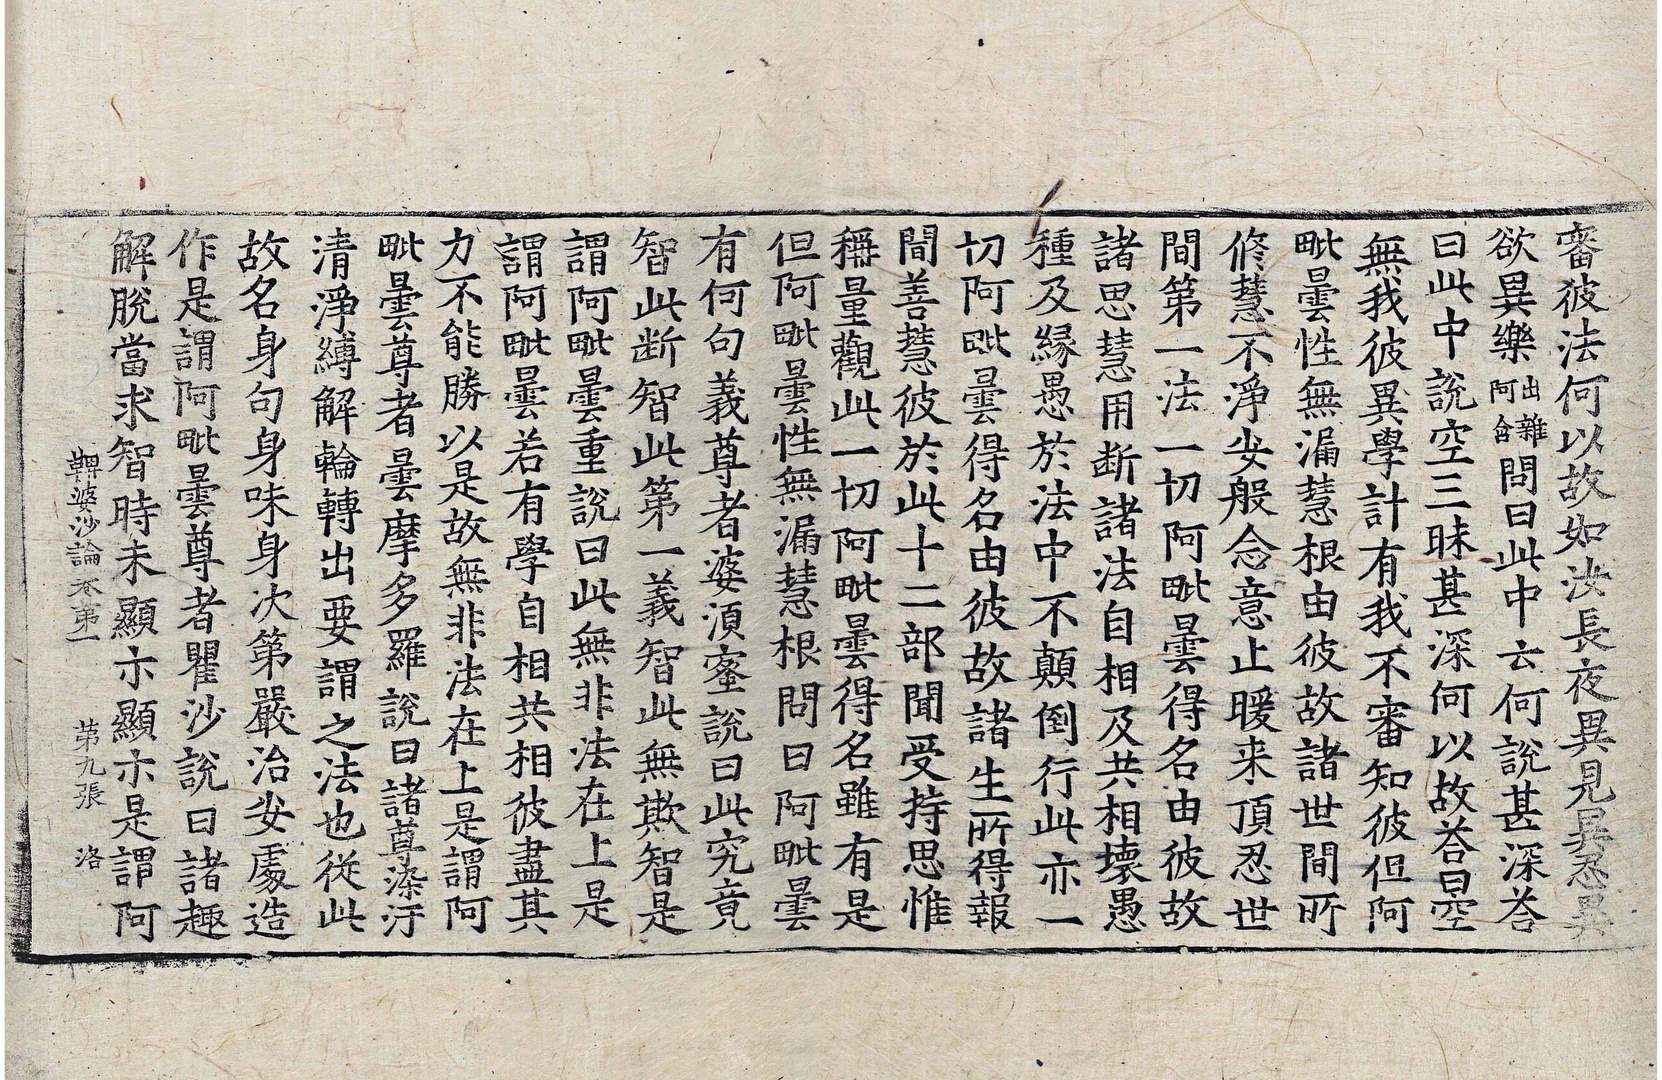 審彼法何以故如汝長夜異見異忍異
欲異樂出雜阿含問曰此中云何說甚深荅
曰此中說空三昧甚深何以故荅曰空
無我彼異學計有我不審知彼但阿
毗曇性無漏慧根由彼故諸世間所
修慧不淨安般念意止暖来頂忍世
間第一法一切阿毗曇得名由彼故
諸思慧用断諸法自相及共相壊愚
種及緣愚於法中不顛倒行此亦一
切阿毗曇得名由彼故諸生所得報
間善慧彼於此十二部聞受持思惟
稱量觀此一切阿毗曇得名雖有是
但阿毗曇性無漏慧根問曰阿毗曇
有何句義尊者婆須蜜說曰此究竟
智此断智此第一義智此無欺智是
謂阿毗曇重說曰此無非法在上是
謂阿毗曇若有學自相共相彼盡其
力不能勝以是故無非法在上是謂阿
毗曇尊者曇摩多羅說曰諸尊染汙
清淨縛解輪轉出要謂之法也從此
故名身句身味身次第嚴治安處造
作是謂阿毗曇尊者瞿沙說曰諸趣
解脫當求智時未顯示顯示是謂阿
鞞婆沙論卷第一 第九張 洛